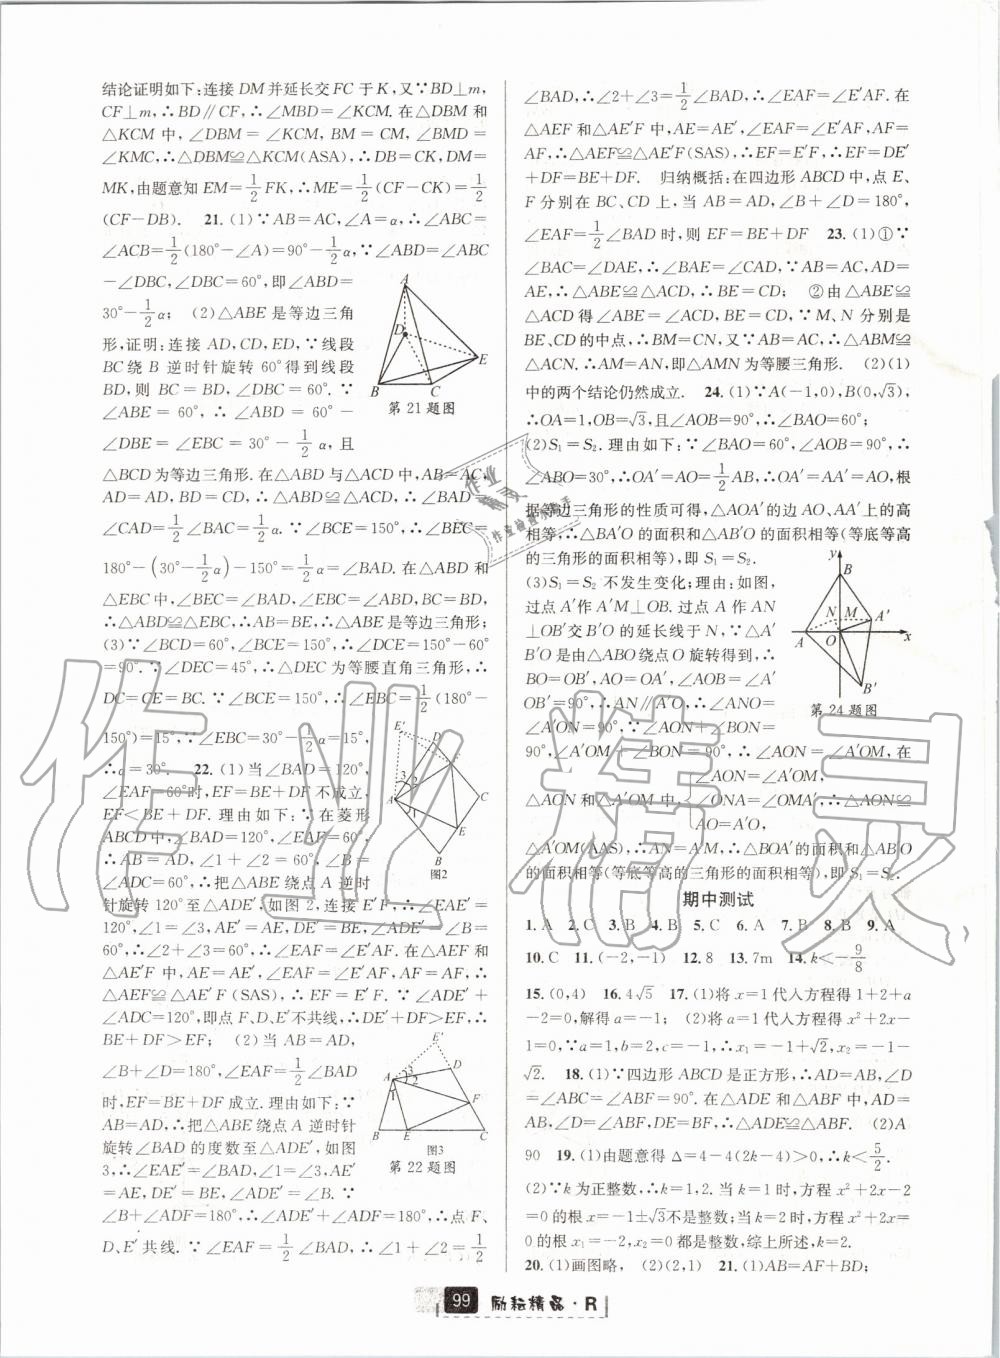 结论证明如下:连接 DM 并延长交 FC 于 K,又∵BD⊥m,
CF⊥m,∴BD∥CF,∴∠MBD=∠KCM. 在△DBM 和
△KCM 中,∠DBM = ∠KCM, BM = CM, ∠BMD =
∠KMC,∴△DBM≌△KCM(ASA),∴DB=CK,DM=
MK,由题意知 EM=1/2FK,∴ME=1/2(CF-CK)=1/2
(CF-DB). 21. (1)∵AB=AC,∠A=α,∴∠ABC=
∠ACB=1/2(180°-∠A)=90°-1/2α,∵∠ABD=∠ABC
-∠DBC,∠DBC=60°,即∠ABD=
30°-1/2α; (2)△ABE 是等边三角
形,证明:连接 AD,CD,ED,∵线段
BC绕 B 逆时针旋转 60°得到线段
BD,则 BC=BD,∠DBC=60°. ∵
∠ABE = 60°, ∴∠ABD = 60° -
∠DBE=∠EBC=30°-1/2α,且
△BCD 为等边三角形. 在△ABD 与△ACD 中,AB=AC,
AD=AD,BD=CD,∴△ABD≌△ACD,∴∠BAD=
∠CAD=1/2∠BAC=1/2α. ∵∠BCE=150°,∴∠BEC=
180°-(30°-1/2α)-150°=1/2α=∠BAD. 在△ABD 和
△EBC 中,∠BEC=∠BAD,∠EBC=∠ABD,BC=BD,
∴△ABD≌△EBC,∴AB=BE,∴△ABE是等边三角形;
(3)∵∠BCD=60°,∠BCE=150°,∴∠DCE=150°-60°
=90°. ∵∠DEC=45°,∴△DEC 为等腰直角三角形,∴
DC=CE=BC. ∵∠BCE=150°,∴∠EBC=1/2(180°-
150°)=15°,∵∠EBC=30°-1/2α=15°,
∴α=30°. 22. (1)当∠BAD=120°,
∠EAF=60°时,EF=BE+DF 不成立,
EF<BE+DF. 理由如下:∵在菱形
ABCD 中,∠BAD=120°,∠EAF=60°,
∴AB=AD,∠1+∠2=60°,∠B=
∠ADC=60°,∴把△ABE绕点A 逆时
针旋转 120°至△ADE′,如图 2,连接 E′F,∴∠EAE′=
120°,∠1=∠3,AE′=AE,DE′=BE,∠ADE′=∠B=
60°,∴∠2+∠3=60°,∴∠EAF=∠E′AF. 在△AEF 和
△AE′F 中,AE=AE′,∠EAF=∠E′AF,AF=AF,∴
△AEF≌△AE′F(SAS),∴EF=E′F. ∵∠ADE′+
∠ADC=120°,即点 F、D、E′不共线,∴DE′+DF>EF,∴
BE+DF>EF; (2)当 AB=AD,∠B
+∠D=180°,∠EAF=1/2∠BAD
时,EF=BE+DF 成立. 理由如下:∵
AB=AD,∴把△ABE 绕点A 逆时针
旋转∠BAD 的度数至△ADE′,如图
3,∴∠EAE′=∠BAD,∠1=∠3,AE′
=AE,DE′=BE,∠ADE′=∠B. ∵
∠B+∠ADF=180°,∴∠ADE′+∠ADF=180°,∴点 F、
D、E′共线. ∵∠EAF=1/2∠BAD,∴∠1+∠2=1/2
A
D
B
C
E
第 21 题图
E′
D
F
A
C
E
B
1
2
3
图2
E′
A
D
F
B
E
C
1
2
3
图3
第 22 题图
∠BAD,∴∠2+∠3=1/2∠BAD,∴∠EAF=∠E′AF. 在
△AEF 和△AE′F 中,AE=AE′,∠EAF=∠E′AF,AF=
AF,∴△AEF≌△AE′F(SAS),∴EF=E′F,∴EF=DE′
+DF=BE+DF. 归纳概括:在四边形 ABCD 中,点 E、
F 分别在 BC、CD 上,当 AB=AD,∠B+∠D=180°,
∠EAF=1/2∠BAD时,则 EF=BE+DF 23. (1)①∵
∠BAC=∠DAE,∴∠BAE=∠CAD. ∵AB=AC,AD=
AE,∴△ABE≌△ACD,∴BE=CD; ②由△ABE≌
△ACD 得∠ABE=∠ACD,BE=CD,∵M、N 分别是
BE,CD的中点,∴BM=CN,又∵AB=AC,∴△ABM≌
△ACN,∴AM=AN,即△AMN 为等腰三角形. (2)(1)
中的两个结论仍然成立. 24. (1)∵A(-1,0),B(0,√3),
∴OA=1,OB=√3,∵∠AOB=90°,∴∠BAO=60°;
(2)S₁=S₂. 理由如下:∵∠BAO=60°,∠AOB=90°,∴
∠ABO=30°,∴OA′=AO=1/2AB,∴OA′=AA′=AO,根
据等边三角形的性质可得,△AOA′的边 AO、AA′上的高
相等,∴△BA′O 的面积和△AB′O 的面积相等(等底等高
的三角形的面积相等),即 S₁=S₂.
(3)S₁=S₂ 不发生变化;理由:如图,
过点 A′作 A′M⊥OB. 过点 A 作 AN
⊥OB′交 B′O 的延长线于 N,∵△A′
B′O 是由△ABO 绕点 O 旋转得到,∴
BO=OB′,AO=OA′,∵∠A′
OB′=90°,∴AN∥A′O,∴
∠A′ON=90°,∵∠AON+∠BON=
90°,∠A′OM+∠BON=90°,∴∠AON=∠A′OM,在
△AON 和△A′OM 中,{∠AON=∠A′OM,
∠ONA=∠OMA′,∴△AON≌
AO=A′O,
△A′OM(AAS),∴AN=A′M,∴△BOA′的面积和△AB′O
的面积相等(等底等高的三角形的面积相等),即 S₁=S₂.
y
B
N
M
A′
A
O
x
B′
第 24 题图
期中测试
1. A 2. C 3. B 4. B 5. C 6. A 7. B 8. B 9. A
10. C 11. (-2,-1) 12. 8 13. 7m 14. k<-9/8
15. (0,4) 16. 4√5 17. (1)将 x=1 代入方程得 1+2+a
-2=0,解得 a=-1; (2)将 a=1 代入方程得 x²+2x-
1=0,∵a=1,b=2,c=-1,∴x₁=-1+√2,x₂=-1-
√2. 18. (1)∵四边形 ABCD 是正方形,∴AD=AB,∠D
=∠ABC=∠ABF=90°. 在△ADE 和△ABF 中,AD=
AB,∠D=∠ABF,DE=BF,∴△ADE≌△ABF. (2)A
90 19. (1)由题意得 Δ=4-4(2k-4)>0,∴k<5/2.
(2)∵k 为正整数,∴k=1,2. 当 k=1 时,方程 x²+2x-2
=0 的根 x=-1±√3不是整数;当 k=2 时,方程 x²+2x
=0 的根 x₁=-2,x₂=0 都是整数,综上所述,k=2.
20. (1)画图略, (2)(2,1) 21. (1)AB=AF+BD;
99 励耘精品·R
作业精灵